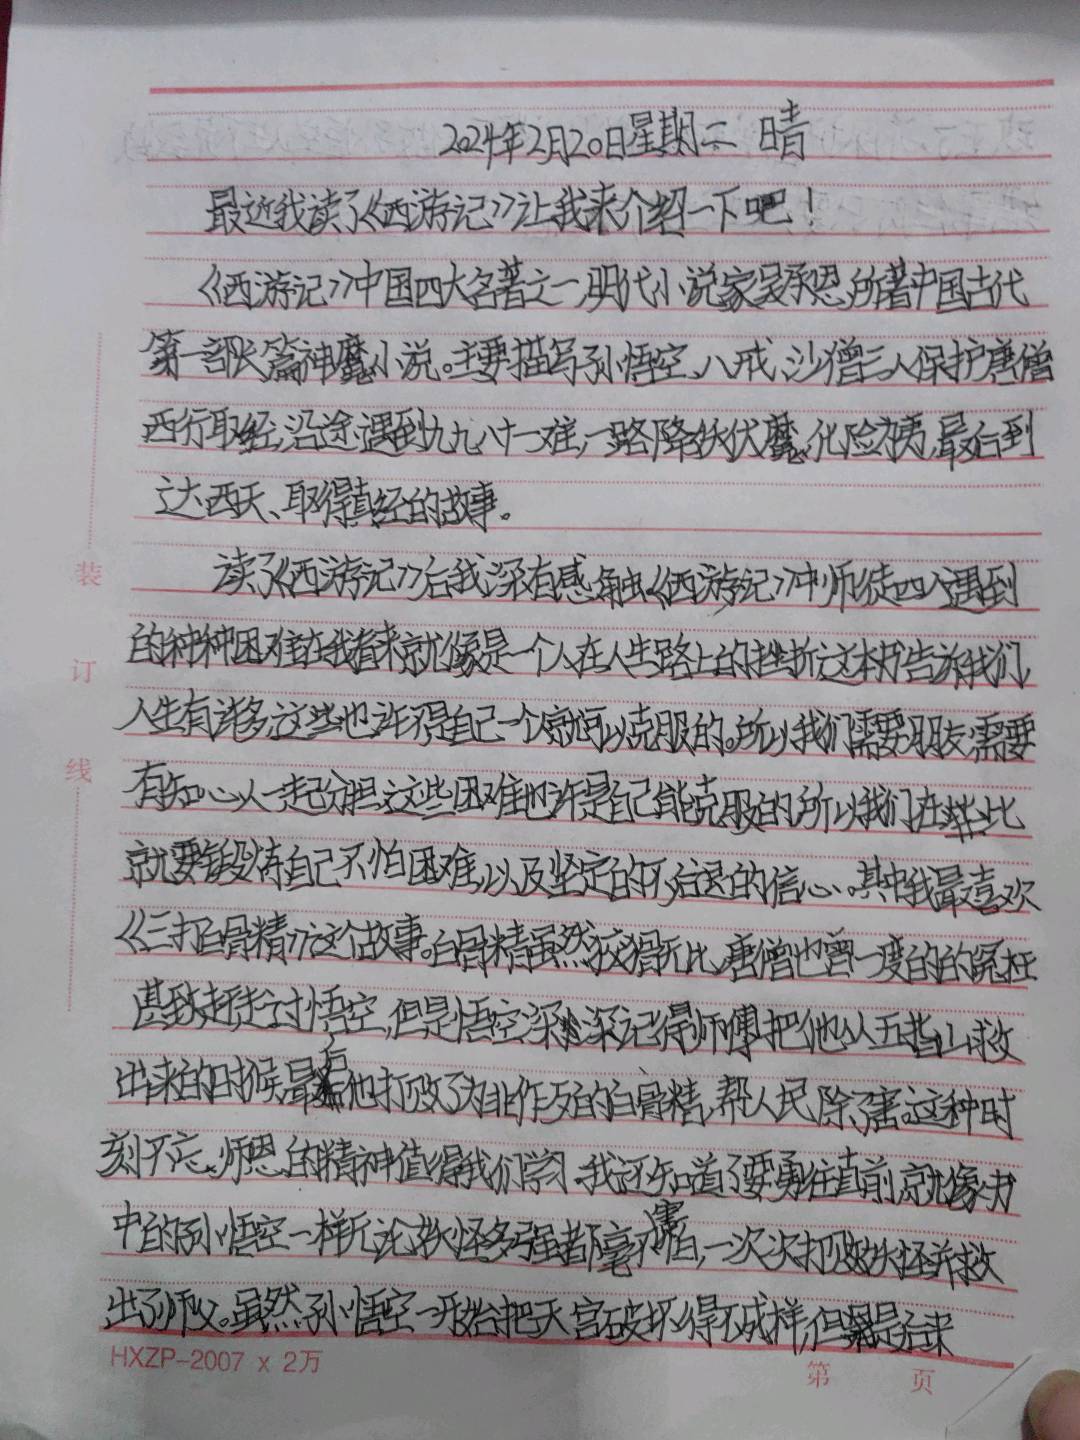 2024年2月20日星期二 晴
最近我读了《西游记》让我来介绍一下吧！
《西游记》中国四大名著之一,明代小说家吴承恩,所著中国古代
第一部长篇神魔小说。主要描写孙悟空、八戒、沙僧三人保护唐僧
西行取经,沿途遇到九九八十一难,一路降妖伏魔,化险为夷,最后到
达西天、取得真经的故事。
读了《西游记》后我深有感触《西游记》中师徒四人遇到
的种种困难在我看来就像是一个人在人生路上的挫折这本书告诉我们,
人生有许多这些也许不是自己一个可以克服的。所以我们需要朋友需要
有知心人一起分担这些困难也许是自己能克服的所以我们在
就要锻炼自己不怕困难,以及坚定的不后退的信心。其中我最喜欢
《三打白骨精》这个故事。白骨精虽然狡猾无比,唐僧也曾一度的的冤枉
甚致赶走过悟空,但是悟空深深记得师傅把他从五指山救
出来的时候,最后他打败了为非作歹的白骨精,帮人民除了害。这种时
刻不忘师恩的精神值得我们学习。我还知道了要勇往直前,就像书
中的孙悟空一样无论妖怪多强都毫不害怕,一次次打败妖怪并救
出了师父。虽然孙悟空一开始把天宫破坏得不成样,但是后来
装
订
线
HXZP-2007 x 2万
第 页